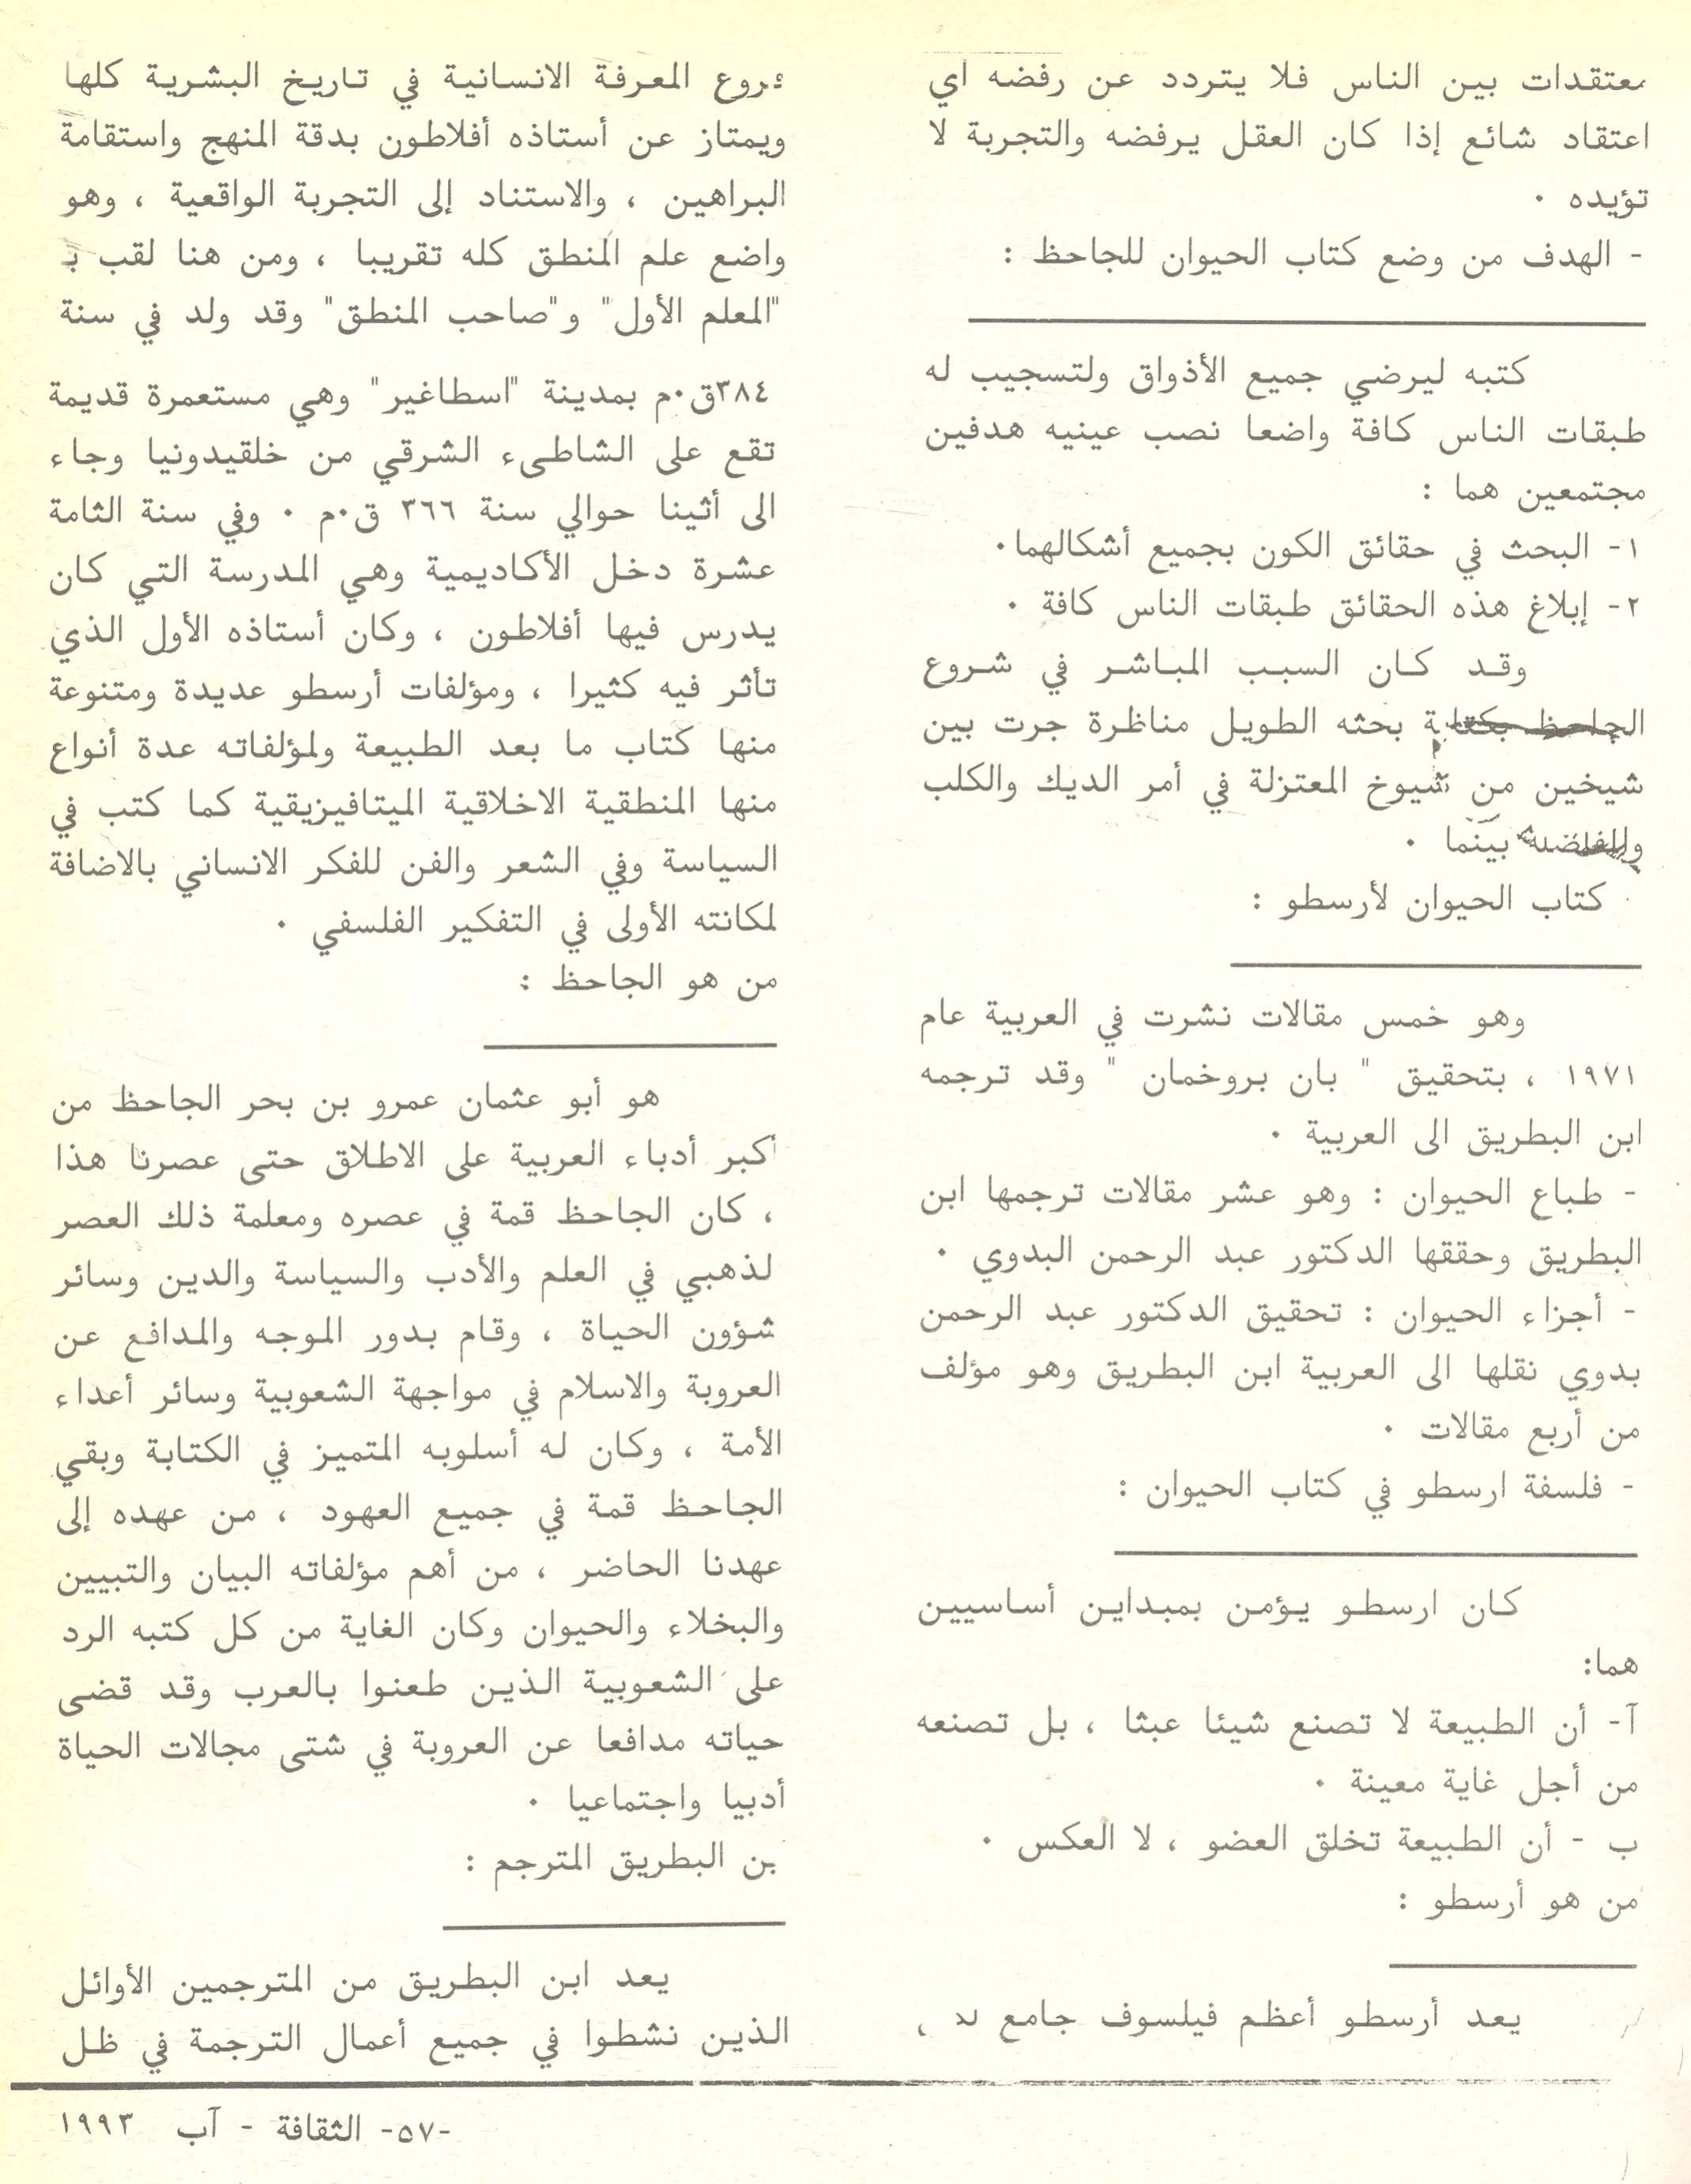 معتقدات بين الناس فلا يتردد عن رفضه اي
اعتقاد شائع إذا كان العقل يرفضه والتجربة لا
تؤيده ٠
- الهدف من وضع كتاب الحيوان للجاحظ :
كتبه ليرضي جميع الأذواق ولتسجيب له
طبقات الناس كافة واضعا نصب عينيه هدفين
مجتمعين هما :
١- البحث في حقائق الكون بجميع أشكالهما٠
٢- إبلاغ هذه الحقائق طبقات الناس كافة ٠
وقد كان السبب المباشر في شروع
الجاحظ بكتابة بحثه الطويل مناظرة جرت بين
شيخين من شيوخ المعتزلة في أمر الديك والكلب
بينما ٠
كتاب الحيوان لأرسطو :
وهو خمس مقالات نشرت في العربية عام
١٩٧١ ، بتحقيق " بان بروخمان " وقد ترجمه
ابن البطريق الى العربية ٠
- طباع الحيوان : وهو عشر مقالات ترجمها ابن
البطريق وحققها الدكتور عبد الرحمن البدوي ٠
- أجزاء الحيوان : تحقيق الدكتور عبد الرحمن
بدوي نقلها الى العربية ابن البطريق وهو مؤلف
من أربع مقالات ٠
- فلسفة ارسطو في كتاب الحيوان :
كان ارسطو يؤمن بمبداين أساسيين
هما:
آ- أن الطبيعة لا تصنع شيئا عبثا ، بل تصنعه
من أجل غاية معينة ٠
ب - أن الطبيعة تخلق العضو ، لا العكس ٠
من هو أرسطو :
يعد أرسطو أعظم فيلسوف جامع
فروع المعرفة الانسانية في تاريخ البشرية كلها
ويمتاز عن أستاذه أفلاطون بدقة المنهج واستقامة
البراهين ، والاستناد إلى التجربة الواقعية ، وهو
واضع علم المنطق كله تقريبا ، ومن هنا لقب بـ
"المعلم الأول" و"صاحب المنطق" وقد ولد في سنة
٣٨٤ق٠م بمدينة "اسطاغير" وهي مستعمرة قديمة
تقع على الشاطىء الشرقي من خلقيدونيا وجاء
الى أثينا حوالي سنة ٣٦٦ ق٠م ٠ وفي سنة الثامة
عشرة دخل الأكاديمية وهي المدرسة التي كان
يدرس فيها أفلاطون ، وكان أستاذه الأول الذي
تأثر فيه كثيرا ، ومؤلفات أرسطو عديدة ومتنوعة
منها كتاب ما بعد الطبيعة ولمؤلفاته عدة أنواع
منها المنطقية الاخلاقية الميتافيزيقية كما كتب في
السياسة وفي الشعر والفن للفكر الانساني بالاضافة
لمكانته الأولى في التفكير الفلسفي ٠
من هو الجاحظ :
هو أبو عثمان عمرو بن بحر الجاحظ من
أكبر أدباء العربية على الاطلاق حتى عصرنا هذا
، كان الجاحظ قمة في عصره ومعلمة ذلك العصر
لذهبي في العلم والأدب والسياسة والدين وسائر
شؤون الحياة ، وقام بدور الموجه والمدافع عن
العروبة والاسلام في مواجهة الشعوبية وسائر أعداء
الأمة ، وكان له أسلوبه المتميز في الكتابة وبقي
الجاحظ قمة في جميع العهود ، من عهده إلى
عهدنا الحاضر ، من أهم مؤلفاته البيان والتبيين
والبخلاء والحيوان وكان الغاية من كل كتبه الرد
على الشعوبية الذين طعنوا بالعرب وقد قضى
حياته مدافعا عن العروبة في شتى مجالات الحياة
أدبيا واجتماعيا ٠
بن البطريق المترجم :
يعد ابن البطريق من المترجمين الأوائل
الذين نشطوا في جميع أعمال الترجمة في ظل
-٥٧- الثقافة - آب ١٩٩٣